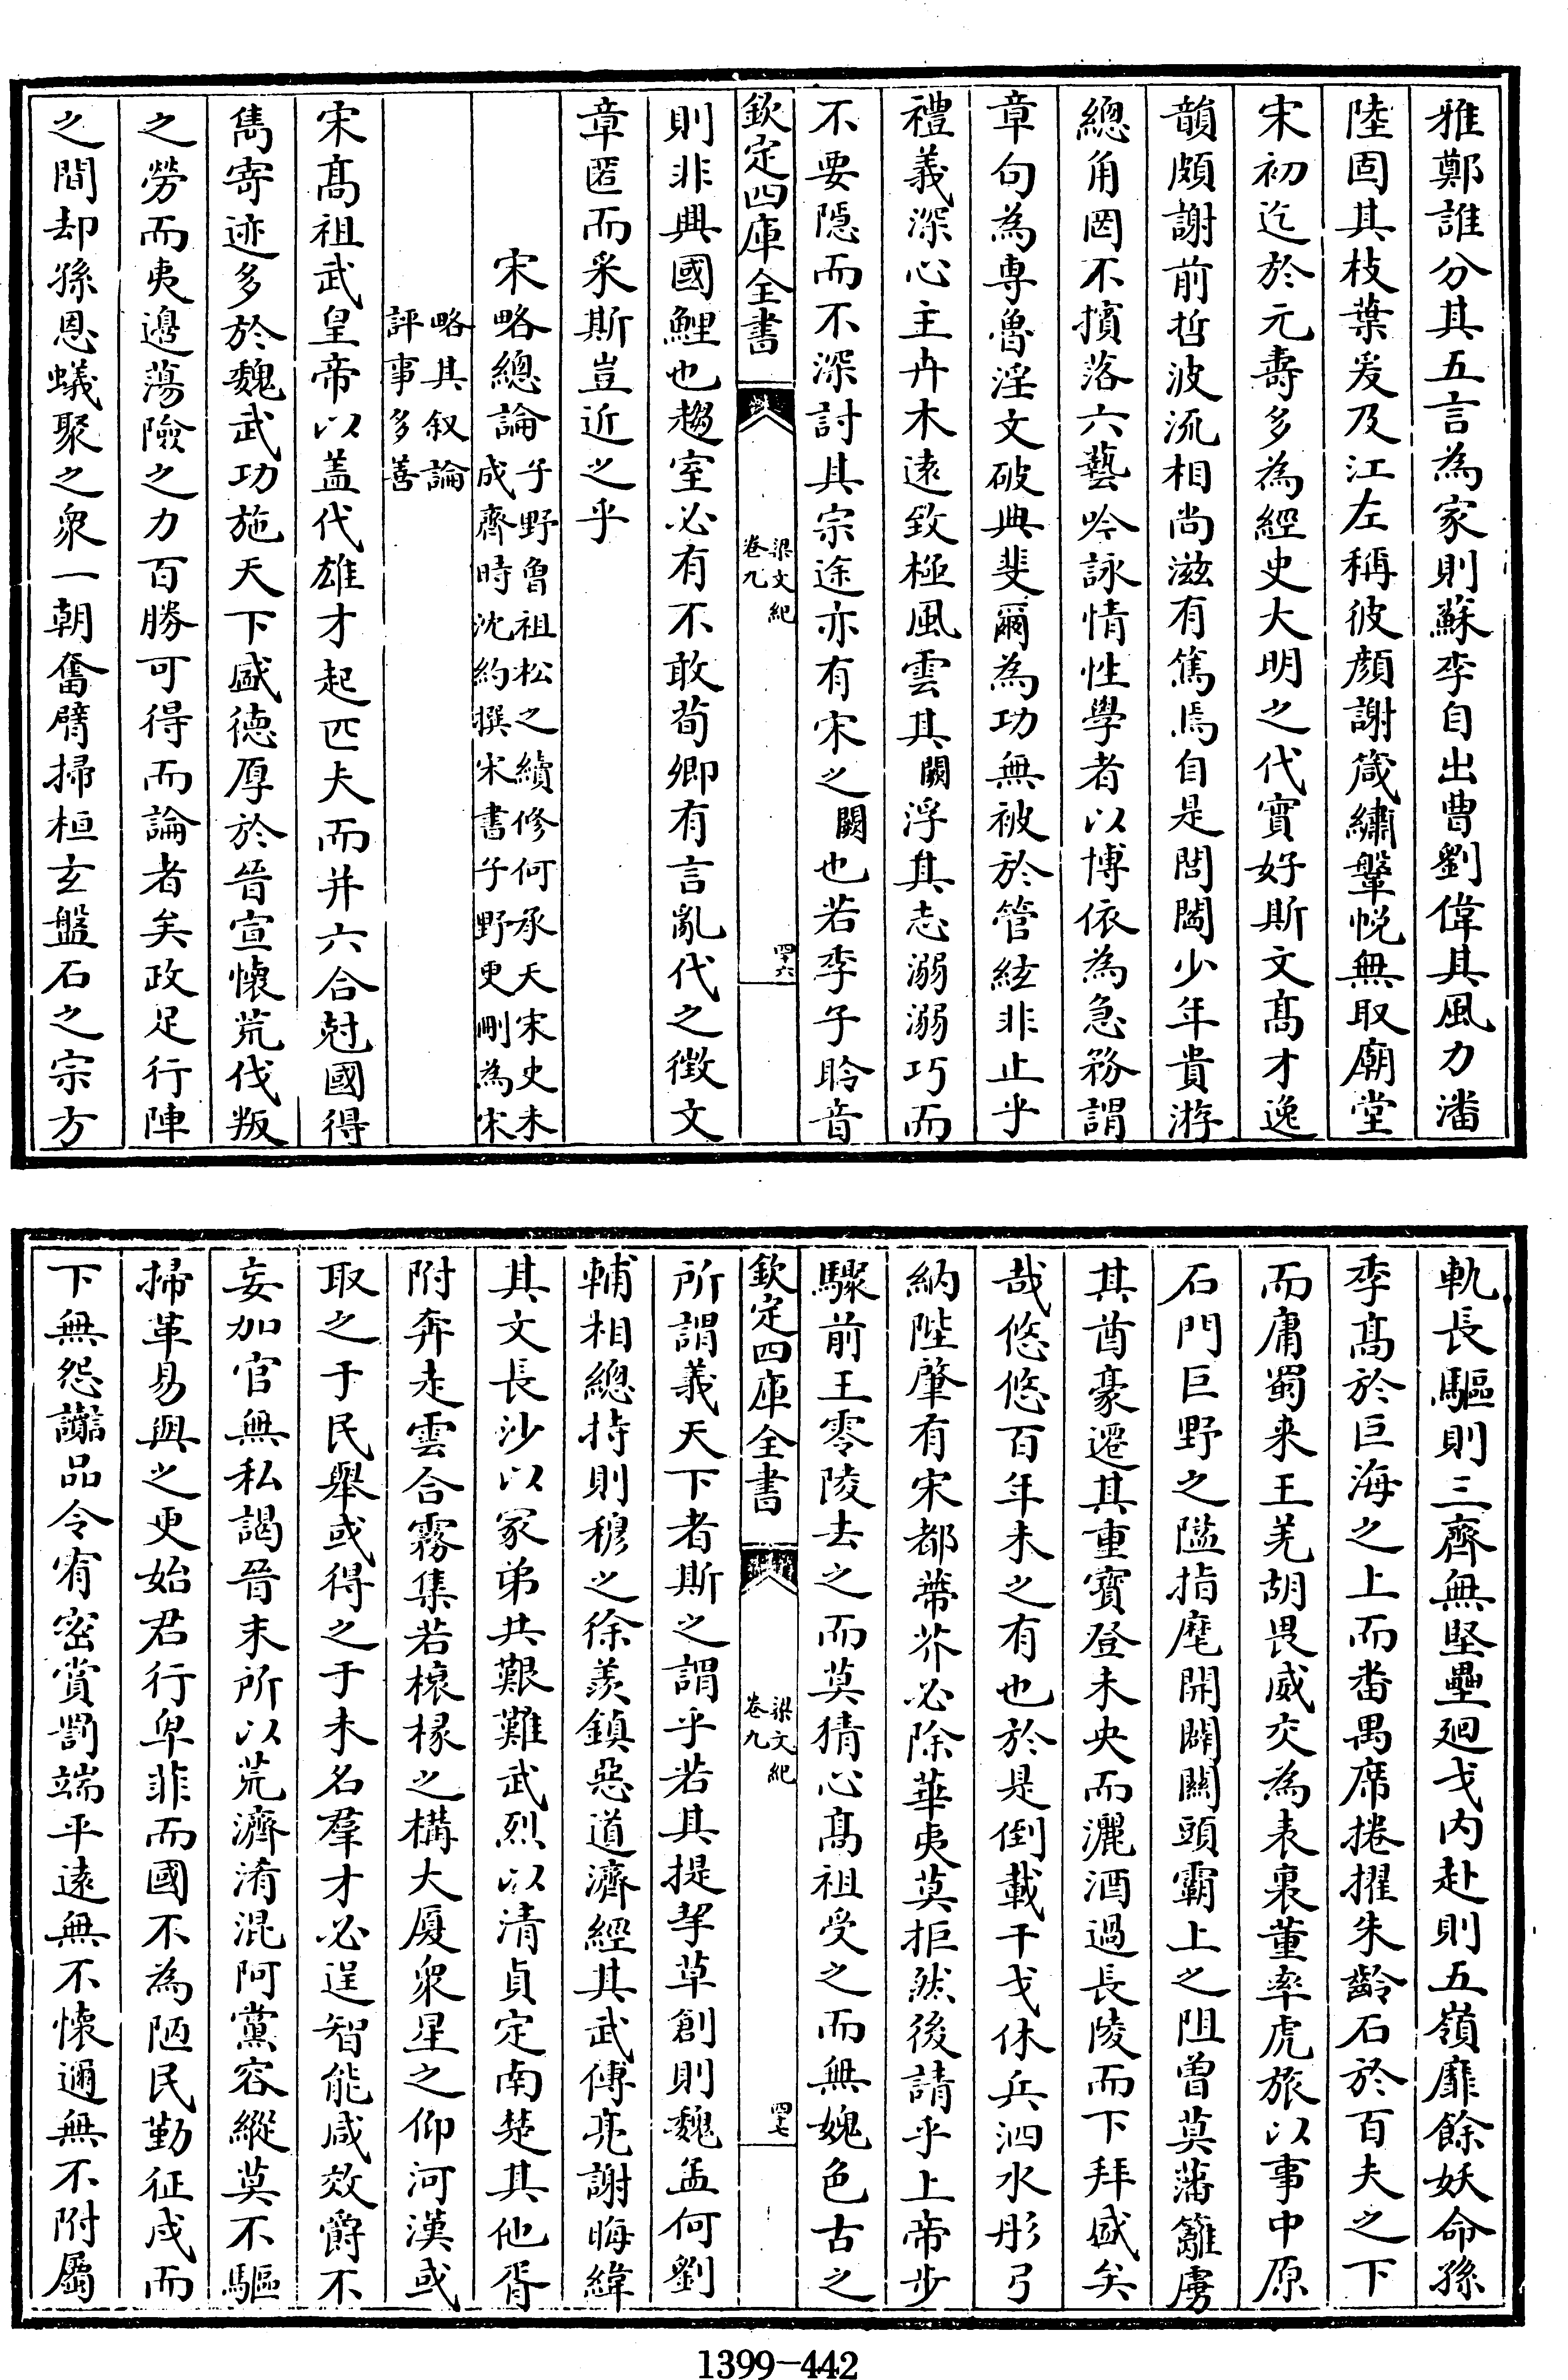 雅鄭誰分其五言為家則蘇李自出曹劉偉其風力潘
陸固其枝葉爰及江左稱彼顔謝箴繡鞶帨無取廟堂
宋初迄於元壽多為經史大明之代實好斯文髙才逸
韻頗謝前哲波流相尚滋有篤焉自是閭閻少年貴游
總角罔不擯落六藝吟詠情性學者以博依為急務謂
章句為専魯淫文破典斐爾為功無被於管絃非止乎
禮義深心主卉木遠致極風雲其闕浮其志溺溺巧而
不要隱而不深討其宗途亦有宋之闕也若季子聆音
欽定四庫全書
梁文紀
卷九
四十六
則非興國鯉也趨室必有不敢荀卿有言亂代之徴文
章匿而采斯豈近之乎
宋略總論
子野魯祖松之續修何承天宋史未
成齊時沈約撰宋書子野更刪為宋
略其叙論
評事多善
宋髙祖武皇帝以盖代雄才起匹夫而并六合尅國得
雋寄迹多於魏武功施天下盛德厚於晉宣懷荒伐叛
之勞而夷邊蕩險之力百勝可得而論者矣政足行陣
之間却孫恩蟻聚之衆一朝奮臂掃桓玄盤石之宗方
軌長驅則三齊無堅壘廻戈内赴則五嶺靡餘妖命孫
季髙於巨海之上而番禺席捲擢朱齡石於百夫之下
而庸蜀来王羌胡畏威交為表裏董率虎旅以事中原
石門巨野之隘指麾開闢關頭霸上之阻曽莫藩籬虜
其酋豪遷其重寳登未央而灑酒過長陵而下拜盛矣
哉悠悠百年未之有也於是倒載干戈休兵泗水彤弓
納陛肇有宋都蔕芥必除華夷莫拒然後請乎上帝步
驟前王零陵去之而莫猜心髙祖受之而無媿色古之
欽定四庫全書
梁文紀
卷九
四十七
所謂義天下者斯之謂乎若其提挈草創則魏孟何劉
輔相總持則穆之徐羨鎮惡道濟經其武傅亮謝晦緯
其文長沙以冡弟共艱難武烈以清貞定南楚其他胥
附奔走雲合霧集若榱椽之構大厦衆星之仰河漢或
取之于民舉或得之于未名羣才必逞智能咸效爵不
妄加官無私謁晉末所以荒濟淆混阿黨容縱莫不驅
掃革易與之更始君行卑菲而國不為陋民勤征戍而
下無怨讟品令宥密賞罰端平逺無不懷邇無不附屬
1399-442